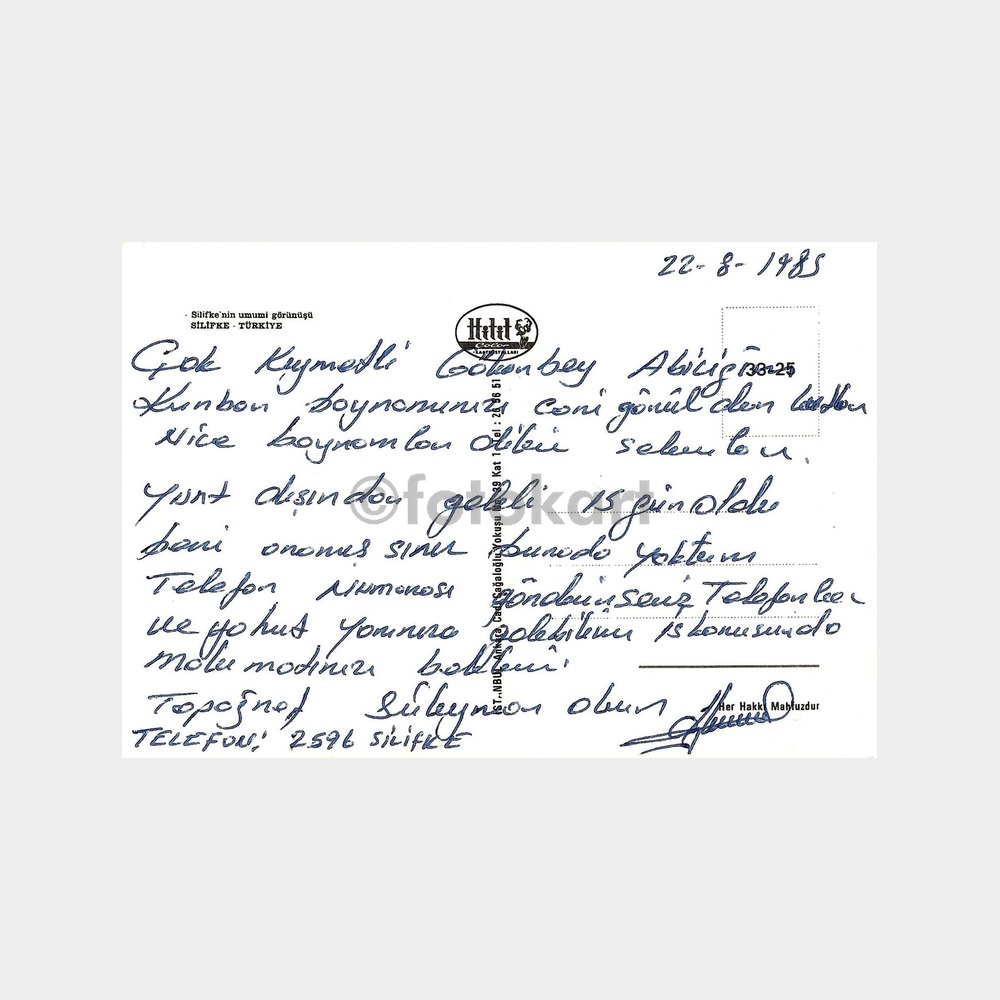 22-8-1985
Silifke'nin umumi görünüşü
SİLİFKE - TÜRKİYE
Hitit
Color
KARTPOSTALLARI
33-25
Çok Kıymetli Gökenbey Abiciğim
Kurban baynamınızı cani gönülden kutlar
Nice baynamlar diler selamlar.
Yurt dışından geleli 15 gün oldu
beni aramışsınız burada yoktum
Telefon Numarası gönderirseniz Telefonlar
ve yahut yanınıza gelebilirim iş konusunda
malumadınızı beklerim
Topoğraf Süleyman
TELEFON: 2596 SİLİFKE
Ankara Cad. Cağaloğlu Yokuşu No. 39 Kat 1 Tel : 26 96 51
Her Hakkı Mahfuzdur
©fotokart